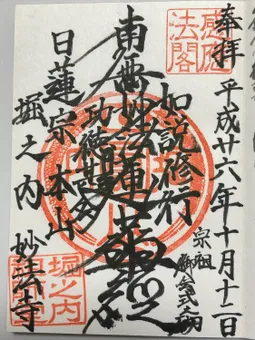 奉拝
平成廿六年十月十二日
宗祖
御会式之砌
如説修行
南無妙法蓮華経
功徳甚多
日蓮宗本山
堀之内
妙法寺
感応
法閣
堀之内